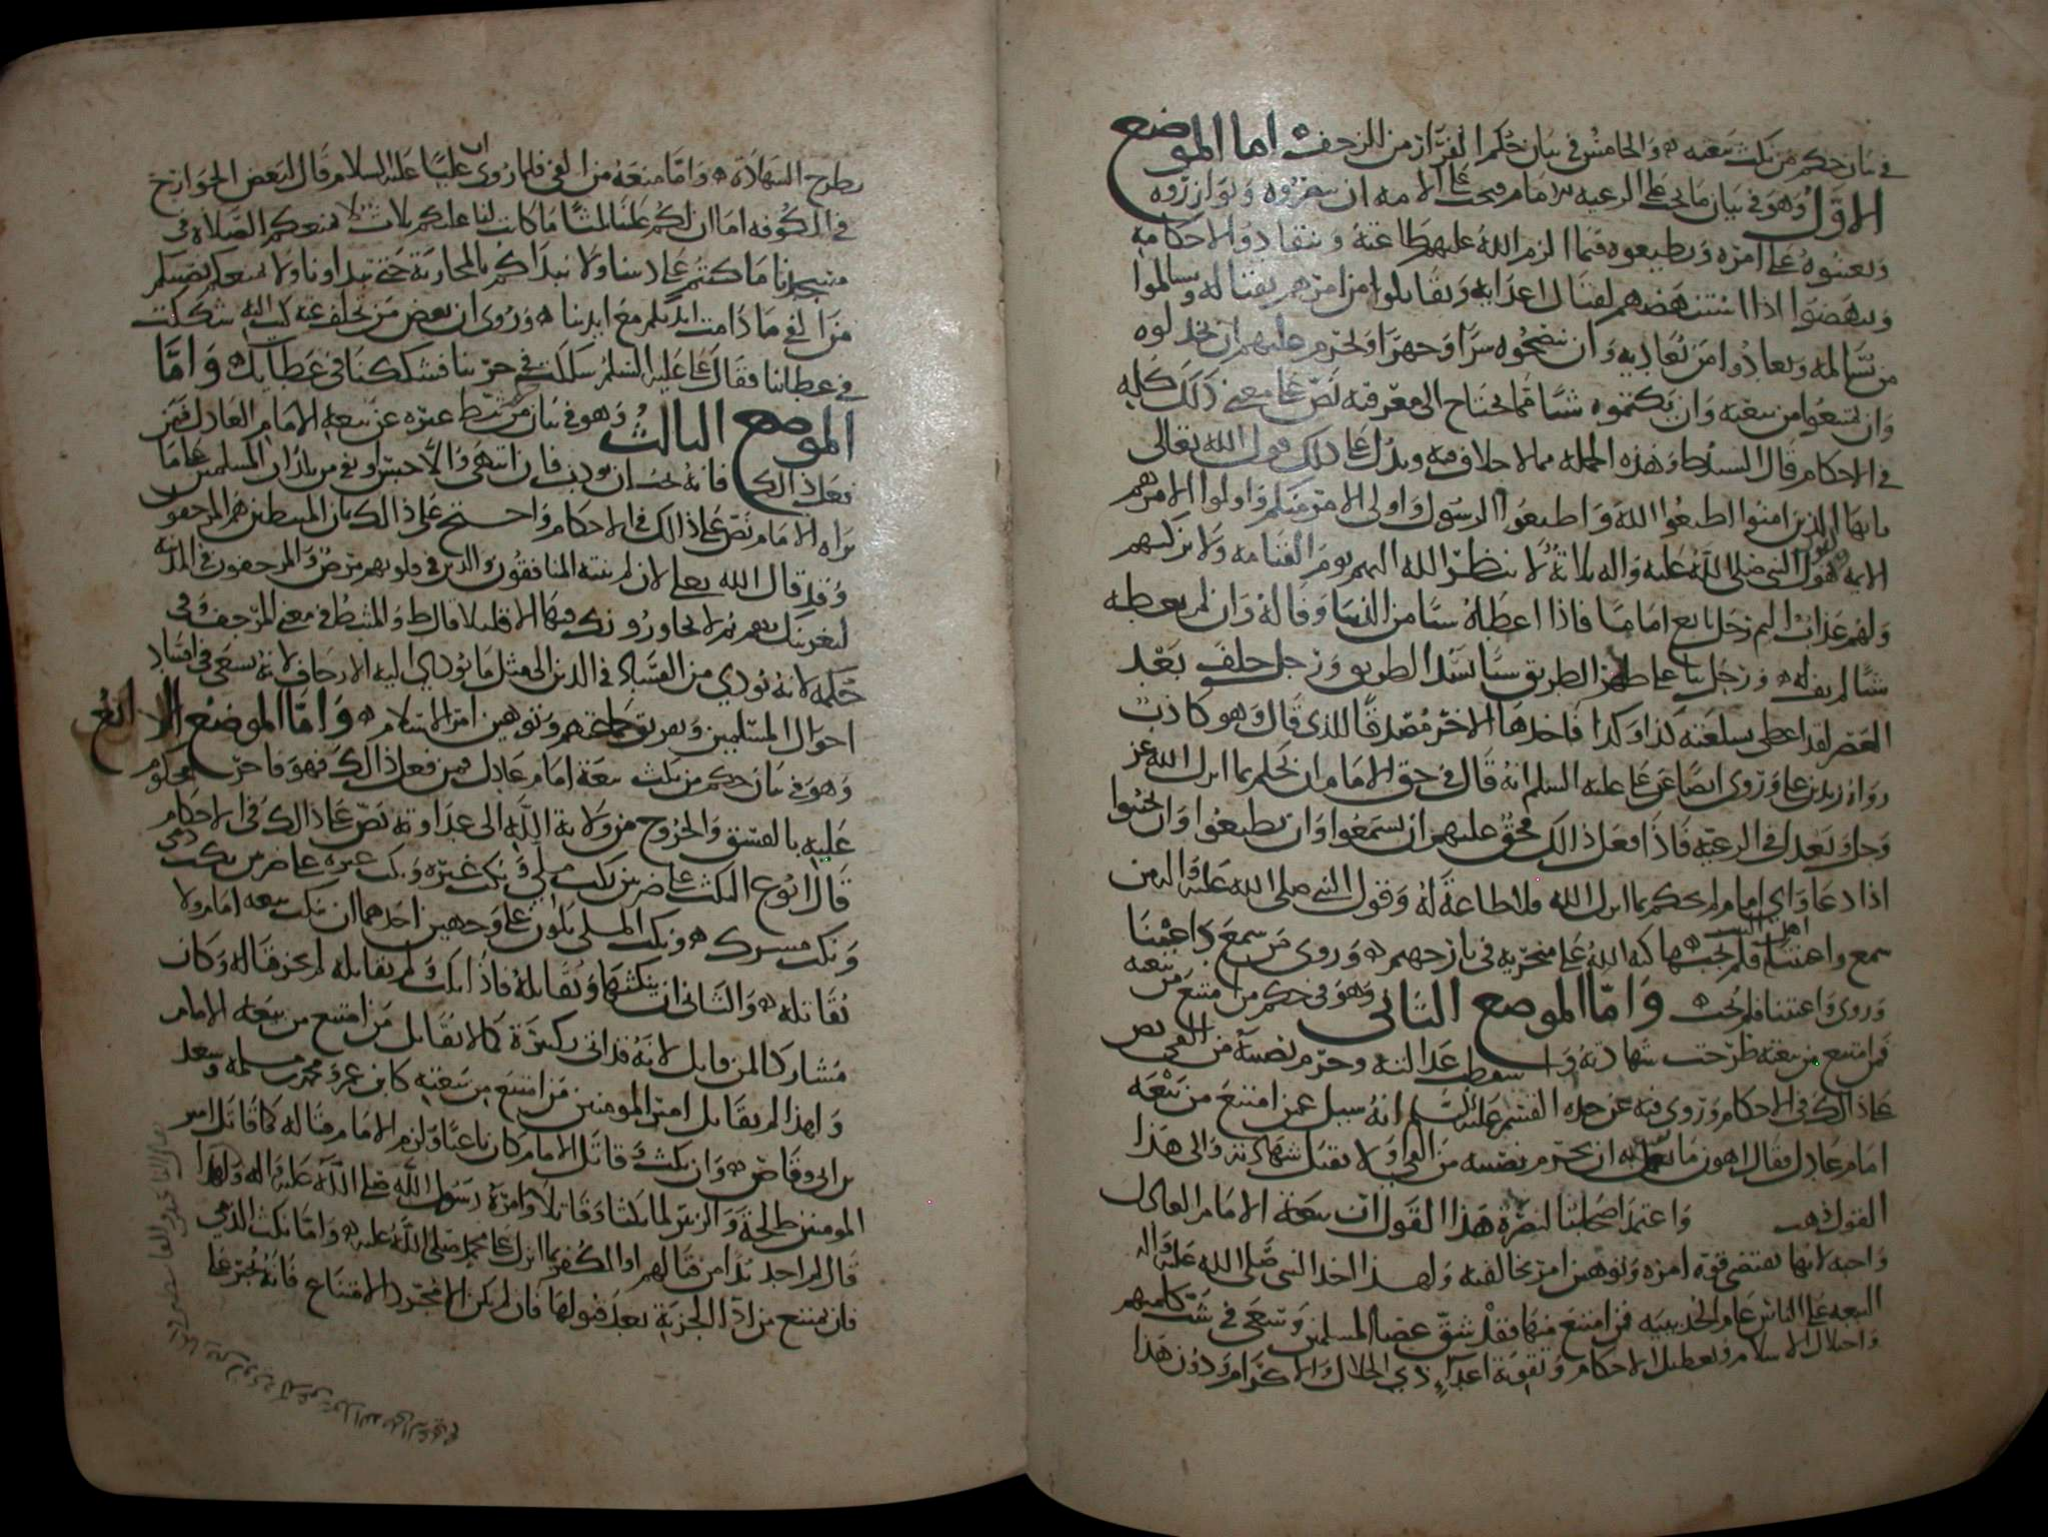 في بيان حكم من نكث بيعته والخامس في بيان حكم الفرار من الزحف اما الموضع
الاول وهو في بيان ما يجب على الرعية للامام فيجب على الامة ان يعزروه ويوازروه
ويعينوه على امره ويطيعوه فيما الزم الله عليهم طاعته وينقادوا لاحكامه
وينهضوا اذا استنهضهم لقتال اعدايه ويقاتلوا من امرهم بقتاله ويسالموا
من يسالمه ويعادوا من يعاديه وان ينصحوه سرا وجهرا ويحرم عليهم ان يخذلوه
وان يمتنعوا من بيعته وان يكتموه شيا مما يحتاج الى معرفته نص على معنى ذلك كله
في الاحكام قال السيد ط وهذه الجملة مما لا خلاف فيه ويدل على ذلك قول الله تعالى
يايها الذين امنوا اطيعوا الله واطيعوا الرسول واولي الامر منكم واولوا الامر هم
الايمة لقول النبي صلى الله عليه واله ثلاثة لا ينظر الله اليهم يوم القيامة ولا يزكيهم
ولهم عذاب اليم رجل بايع اماما فاذا اعطاه شيا من الدنيا وفا له وان لم يعطه
شيا لم يف له ورجل على ظهر الطريق ورجل حلف بعد
العصر لقد اعطى بسلعته كذا وكذا فاخذها الاخر مصدقا للذي قال وهو كاذب
رواه زيد بن علي وروى ايضا عن علي عليه السلم انه قال في حق الامام ان يحكم بما انزل الله عز
وجل ويعدل في الرعية فاذا فعل ذالك فحق عليهم ان يسمعوا وان يطيعوا وان يجيبوا
اذا دعا واي امام لم يحكم بما انزل الله فلا طاعة له وقول النبي صلى الله عليه واله من
سمع واعيتنا اهل البيت فلم يجبها كبه الله على منخريه في نار جهنم وروي من سمع داعينا
وروي واعيتنا فلم يجب واما الموضع الثاني وهو في حكم من امتنع من بيعته
فمن امتنع من بيعته طرحت شهادته واسقطت عدالته وحرم نصيبه من الفي نص
على ذالك في الاحكام وروى فيه عن جده القسم عليه السلم انه سيل عمن امتنع من بيعة
امام عادل فقال اهون ما يعمل به ان يحرم نصيبه من الفي ولا يقبل شهادته والى هذا
القول ذهب واعتمد اصحابنا لنصرة هذا القول ان بيعة الامام العادل
واجبة لانها تقتضي قوة امره وتوهين امر مخالفيه ولهذا اخذ النبي صلى الله عليه واله
البيعة على الناس عام الحديبية فمن امتنع منها فقد شق عصا المسلمين وسعى في شت كلمتهم
واختلال الاسلام وتعطيل الاحكام وتقوية اعداء ذي الجلال والاكرام ودون هذا
يطرح الشهادة واما منعه من الفي فلما روي ان عليا عليه السلام قال لبعض الخوارج
في الكوفة اما ان لكم علينا ثلثا ما كانت لنا عليكم ثلاث لا نمنعكم الصلاة في
مسجدنا ما كنتم على ديننا ولا نبدأكم بالمحاربة حتى تبداونا ولا نمنعكم نصيبكم
من الفي ما دامت ايديكم مع ايدينا وروي ان بعض من تخلف عنه كتب اليه شككت
في عطاينا فقال علي عليه السلم شككت في حربنا فشككنا في عطايك واما
الموضع الثالث وهو في بيان من ثبط غيره عن بيعة الامام العادل فمن
فعل ذالك فانه يجب ان يودب فان انتهى والا حبس او نفي من بلدان المسلمين على ما
يراه الامام نص على ذالك في الاحكام واحتج على ذالك بان المثبطين هم المرجفون
وقد قال الله تعلى لان لم ينته المنافقون والذين في قلوبهم مرض والمرجفون في المدينة
لنغرينك بهم ثم لا يجاورونك فيها الا قليلا قال ط والمثبط في معنى المرجف وفي
حكمه لانه يودي من الفساد في الدين الى مثل ما يودي اليه الارجاف لانه يسعى في افساد
احوال المسلمين وتفريق جماعتهم وتوهين امر الاسلام واما الموضع الرابع
وهو في بيان حكم من نكث بيعة امام عادل فمن فعل ذالك فهو فاجر محكوم
عليه بالفسق والخروج من ولاية الله الى عداوته نص على ذالك في الاحكام
قال ابو ع النكث على ضربين نكث ملي ونكث غيره ونكث غيره على ضربين نكث ذمي
ونكث مشرك ونكث الملي يكون على وجهين احدهما ان ينكث بيعة امام ولا
يقاتله والثاني ان ينكثها ويقاتله فاذا نكث ولم يقاتله لم يجز قتاله وكان
مشاركا لمن قاتل لانه قد اتى كبيرة كما لا يقاتل من امتنع من بيعة الامام
ولهذا لم يقاتل امير المومنين من امتنع من بيعته كابن عمر ومحمد بن مسلمة وسعد
بن ابي وقاص وان نكث وقاتل الامام كان باغيا ولزم الامام قتاله كما قاتل امير
المومنين طلحة والزبير لما نكثا وقاتلا وامره رسول الله صلى الله عليه واله ولهذا
قال لم اجد بدا من قتالهم او الكفر بما انزل على محمد صلى الله عليه واما نكث الذمي
فان يمتنع من اداء الجزية بعد قبولها فان لم يكن الا مجرد الامتناع فانه يجبر على